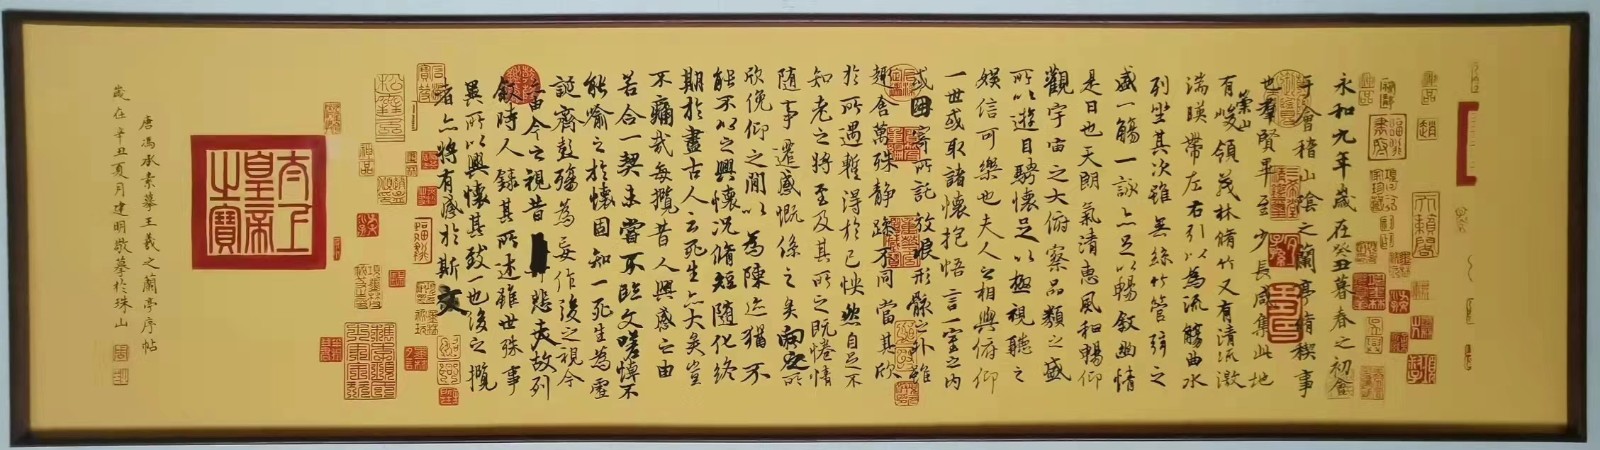 永和九年歲在癸丑暮春之初會
于會稽山陰之蘭亭脩稧事
也羣賢畢至少長咸集此地
有崇山峻領茂林脩竹又有清流激
湍暎帶左右引以為流觴曲水
列坐其次雖無絲竹管弦之
盛一觴一詠亦足以暢敘幽情
是日也天朗氣清惠風和暢仰
觀宇宙之大俯察品類之盛
所以遊目騁懷足以極視聽之
娛信可樂也夫人之相與俯仰
一世或取諸懷抱悟言一室之內
或因寄所託放浪形骸之外雖
趣舍萬殊静躁不同當其欣
於所遇暫得於己怏然自足不
知老之將至及其所之既惓情
隨事遷感慨係之矣向之所
欣俛仰之閒以為陳迹猶不
能不以之興懷況脩短隨化終
期於盡古人云死生亦大矣豈
不痛哉每攬昔人興感之由
若合一契未嘗不臨文嗟悼不
能喻之於懷固知一死生為虛
誕齊彭殤為妄作後之視今
亦由今之視昔悲夫故列
敘時人錄其所述雖世殊事
異所以興懷其致一也後之攬
者亦將有感於斯文
太上
皇帝
之寶
唐馮承素摹王羲之蘭亭序帖
歲在辛丑夏月建明敬摹於珠山